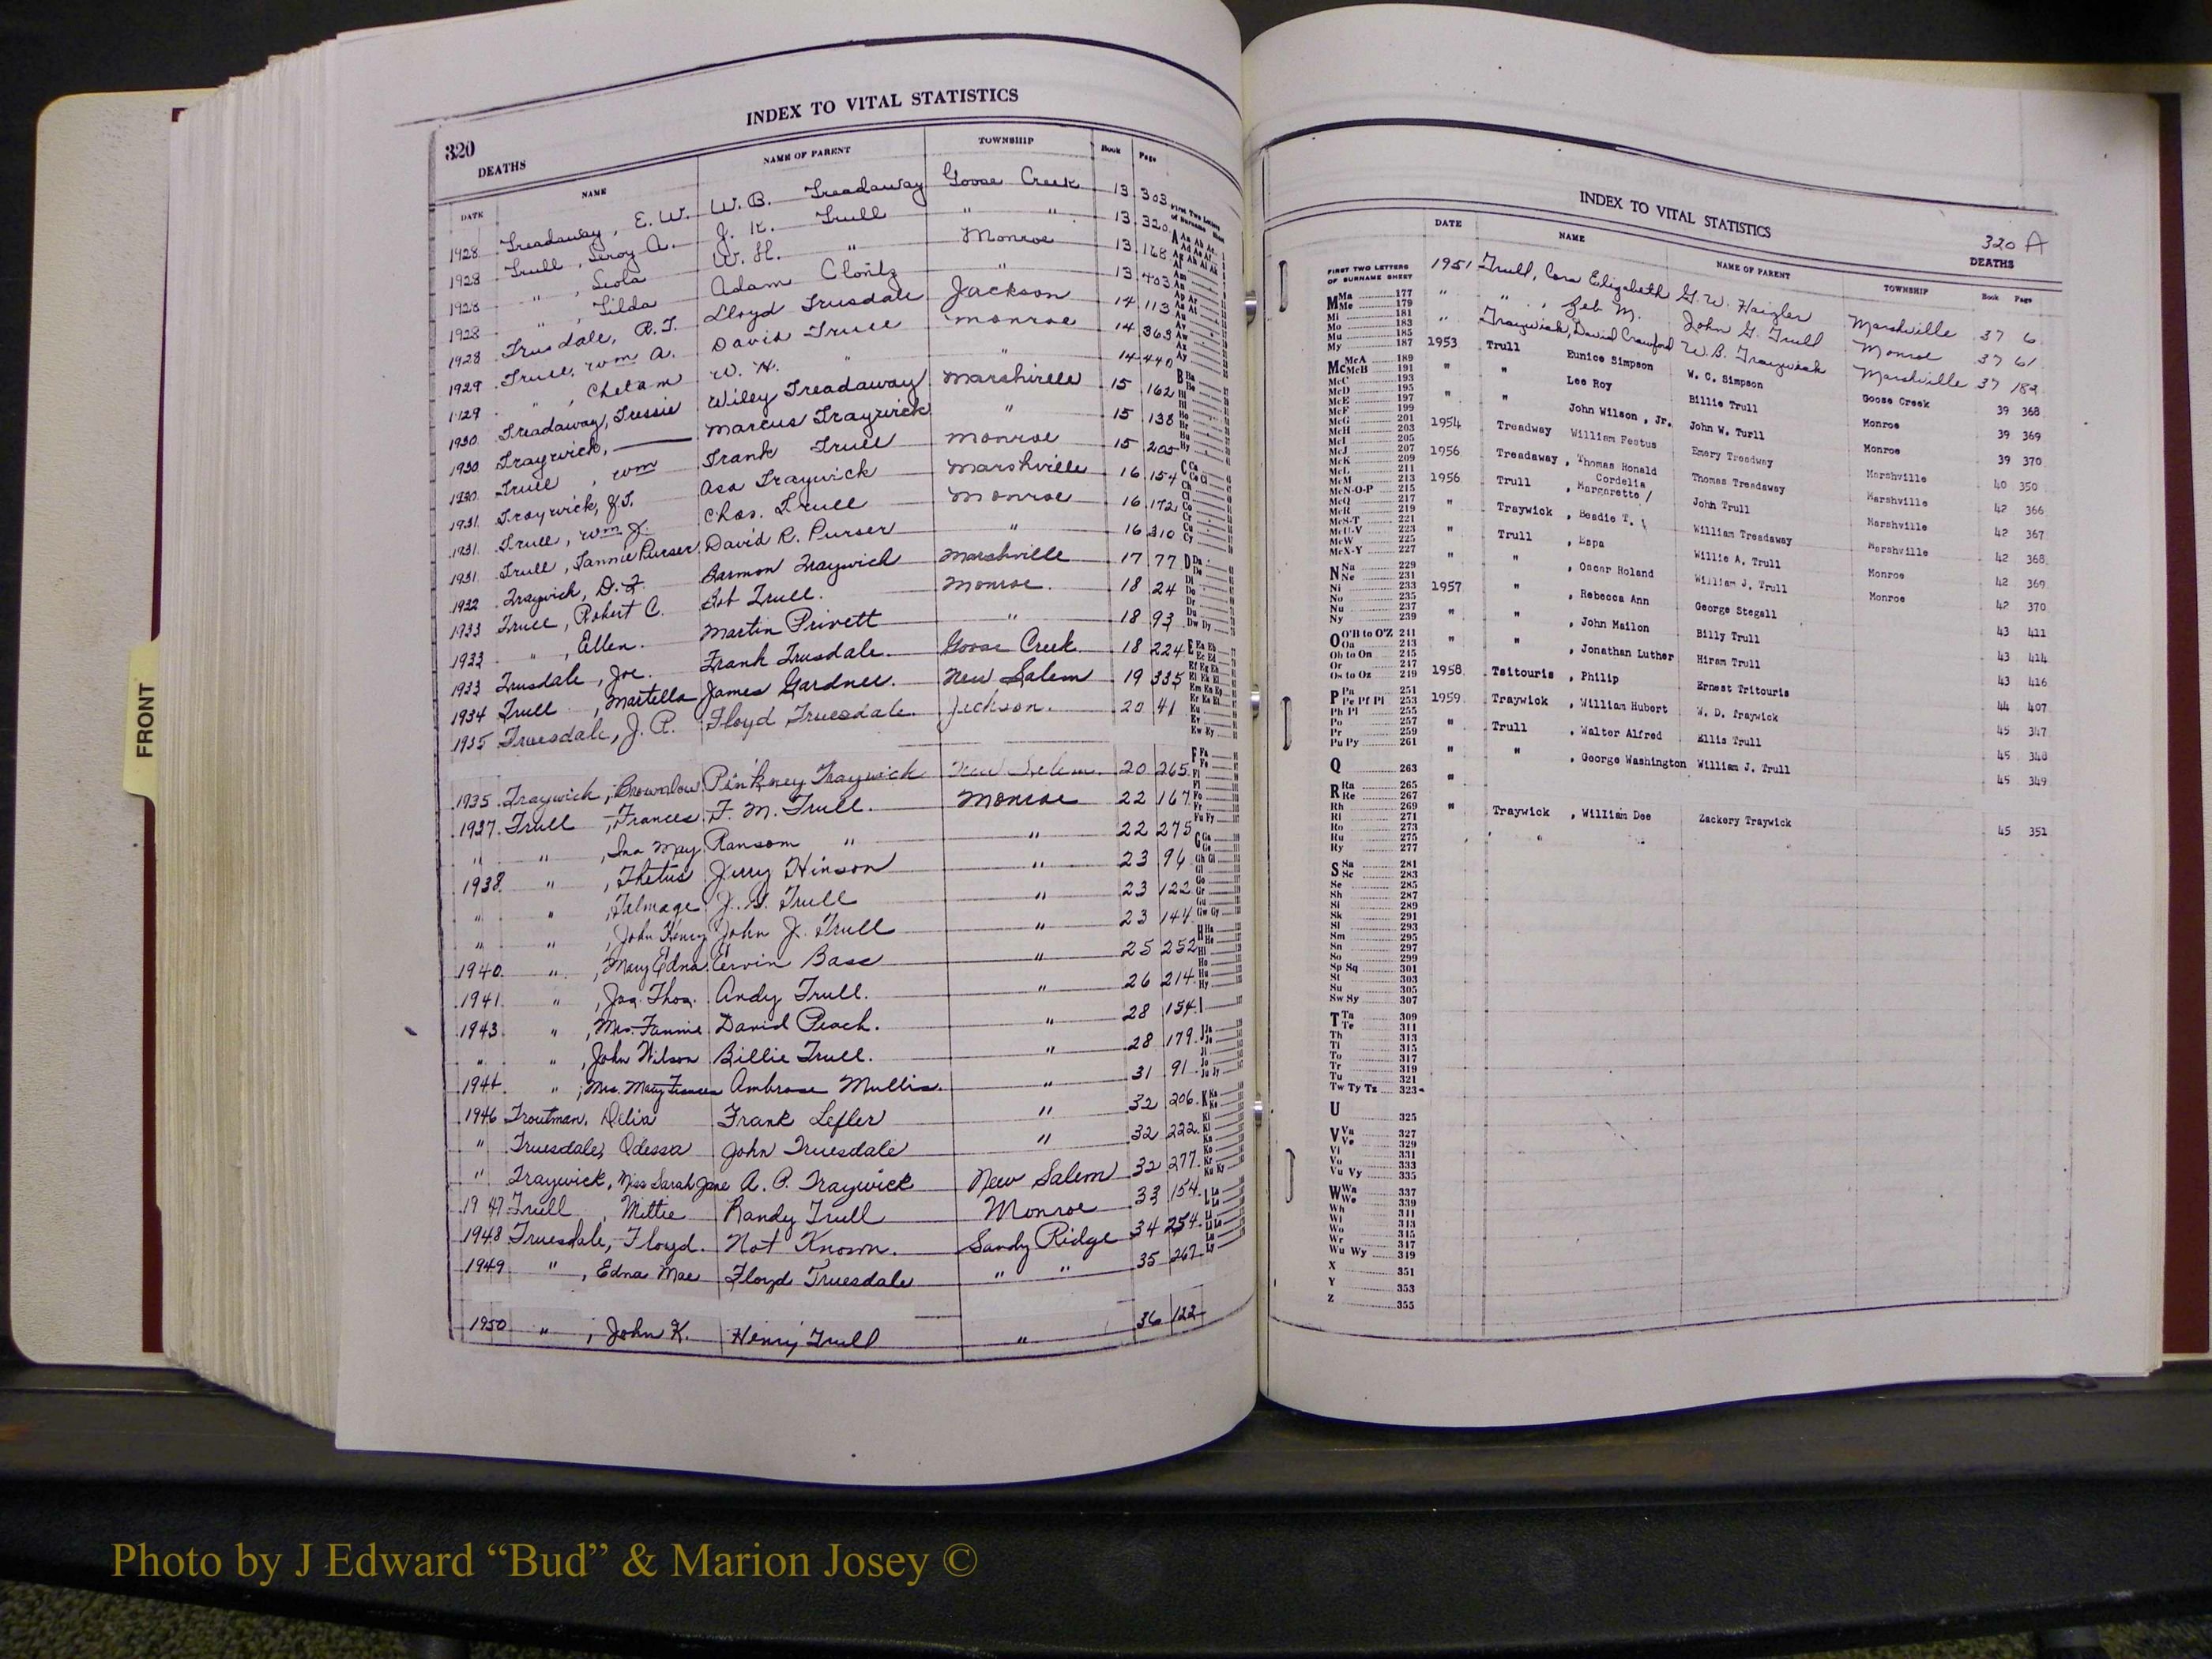 INDEX TO VITAL STATISTICS
320
DEATHS
DATE NAME NAME OF PARENT TOWNSHIP Book Page
1928 Treadaway, E. W. W. B. Treadaway Goose Creek 13 303
1928 Trull, Leroy A. J. K. Trull " " 13 320
1928 " , Leola W. H. " Monroe 13 168
1928 " , Tilda Adam Clontz " 13 403
1928 Trusdale, R. T. Lloyd Trusdale Jackson 14 113
1929 Trull, Wm A. David Trull Monroe 14 363
1929 " , Chetam W. H. " " 14 440
1930 Treadaway, Tressie Wiley Treadaway Marshville 15 162
1930 Traywick, — Marcus Traywick " 15 138
1930 Trull, Wm Frank Trull Monroe 15 205
1931 Traywick, J. T. Asa Traywick Marshville 16 154
1931 Trull, Wm J. Chas. Trull Monroe 16 172
1931 Trull, Fannie Purser David R. Purser " 16 310
1932 Traywick, D. F. Harmon Traywick Marshville 17 77
1933 Trull, Robert C. Bob Trull. Monroe. 18 24
1933 " , Ellen. Martin Privett " 18 93
1933 Trusdale, Joe. Frank Trusdale. Goose Creek. 18 224
1934 Trull , Martella James Gardner. New Salem 19 335
1935 Truesdale, J. P. Floyd Truesdale. Jackson. 20 41
1935 Traywick, Brownlow Pinkney Traywick New Salem 20 265
1937 Trull , Frances F. M. Trull. Monroe 22 167
" " , Ina May Ransom " " 22 275
1938 " , Thetus Jerry Hinson " 23 96
" " , Talmage J. S. Trull " 23 122
" " , John Henry John J. Trull " 23 144
1940 " , Mary Edna Ervin Bass " 25 252
1941 " , Jas. Thos. Andy Trull. " 26 214
1943 " , Mrs. Fannie David Peach. " 28 154
" " , John Wilson Billie Trull. " 28 179
1944 " , Mrs. Mary Frances Ambrose Mullis. " 31 91
1946 Troutman, Delia Frank Lefler " 32 206
" Truesdale, Odessa John Truesdale " 32 222
" Traywick, Miss Sarah Jane A. P. Traywick New Salem 32 277
1947 Trull , Mittie Randy Trull Monroe 33 154
1948 Truesdale, Floyd. Not Known. Sandy Ridge 34 254
1949 " , Edna Mae Floyd Truesdale " " 35 267
1950 " , John K. Henry Trull " 36 122
FRONT
INDEX TO VITAL STATISTICS
320 A
DEATHS
DATE NAME NAME OF PARENT TOWNSHIP Book Page
1951 Trull, Cora Elizabeth G. W. Haigler Marshville 37 6
" " , Zeb M. John G. Trull Monroe 37 61
" Traywick, David Crawford W. B. Traywick Marshville 37 182
1953 Trull Eunice Simpson W. C. Simpson Goose Creek 39 368
" " Lee Roy Billie Trull Monroe 39 369
" " John Wilson , Jr. John W. Turll Monroe 39 370
1954 Treadway William Festus Emery Treadway Marshville 40 350
1956 Treadaway , Thomas Ronald Thomas Treadaway Marshville 42 366
1956 Trull , Margarette / Cordelia John Trull Marshville 42 367
" Traywick , Beadie T. William Treadaway Marshville 42 368
" Trull , Espa Willie A. Trull Monroe 42 369
" " , Oscar Roland William J. Trull Monroe 42 370
1957 " , Rebecca Ann George Stegall 43 411
" " , John Mailon Billy Trull 43 414
" " , Jonathan Luther Hiram Trull 43 416
1958 Tsitouris , Philip Ernest Tritouris 44 407
1959 Traywick , William Hubert W. D. Traywick 45 347
" Trull , Walter Alfred Ellis Trull 45 348
" " , George Washington William J. Trull 45 349
" Traywick , William Dee Zackery Traywick 45 351
FIRST TWO LETTERS
OF SURNAME SHEET
M Ma 177
Me 179
Mi 181
Mo 183
Mu 185
My 187
Mc McA 189
McB 191
McC 193
McD 195
McE 197
McF 199
McG 201
McH 203
McI 205
McJ 207
McK 209
McL 211
McM 213
McN-O-P 215
McQ 217
McR 219
McS-T 221
McU-V 223
McW 225
McX-Y 227
N Na 229
Ne 231
Ni 233
No 235
Nu 237
Ny 239
O O'B to O'Z 241
Oa 243
Ob to On 245
Or 247
Os to Oz 249
P Pa 251
Pe Pf Pi 253
Ph Pl 255
Po 257
Pr 259
Pu Py 261
Q 263
R Ra 265
Re 267
Rh 269
Ri 271
Ro 273
Ru 275
Ry 277
S Sa 281
Sc 283
Se 285
Sh 287
Si 289
Sk 291
Sl 293
Sm 295
Sn 297
So 299
Sp Sq 301
St 303
Su 305
Sw Sy 307
T Ta 309
Te 311
Th 313
Ti 315
To 317
Tr 319
Tu 321
Tw Ty Tz 323
U 325
V Va 327
Ve 329
Vi 331
Vo 333
Vu Vy 335
W Wa 337
We 339
Wh 341
Wi 343
Wo 345
Wr 347
Wu Wy 349
X 351
Y 353
Z 355
Photo by J Edward “Bud” & Marion Josey ©